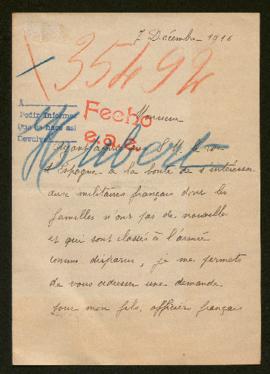 7 Décembre 1916
35492
A
Pedir Informe
Que se hace así
Devuelto
Fecho
e.a.c.
Monsieur
Humbert
Ayant appris que S. M. le roi
d'Espagne a la bonté de s'intéresser
aux militaires français dont les
familles n'ont pas de nouvelles
et qui sont classés à l'armée
comme disparus, je me permets
de vous adresser une demande
pour mon fils, officier français